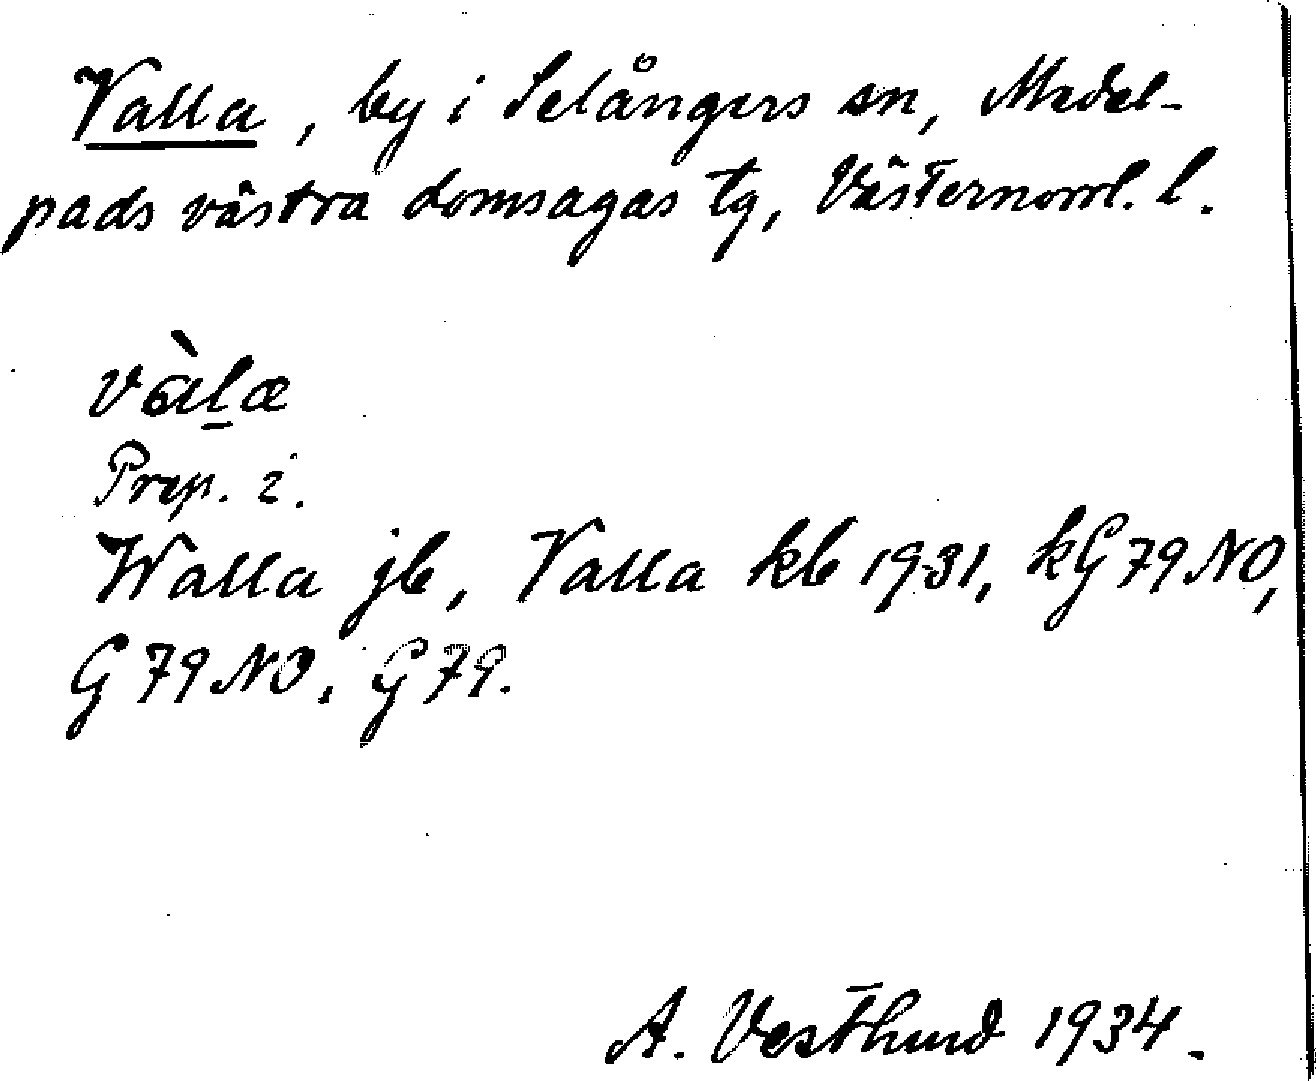 Valla, by i Selångers sn, Medel-
pads västra domsagas tg, Västernorrl. l.
Prep. i.
Walla jb, Valla kb 1931, kG79NO,
G79NO, G79.
A. Vestlund 1934.